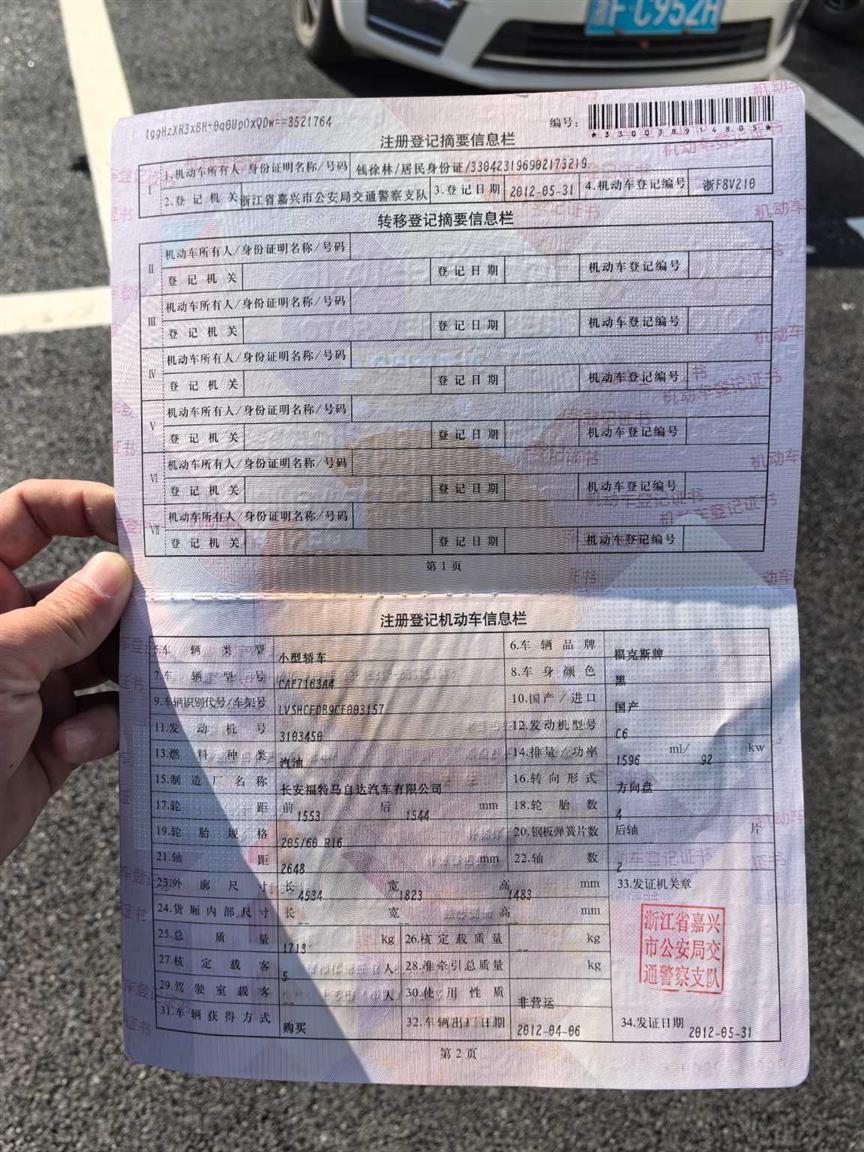 浙F·C952H
tggHzXR3xBH+0q0UpOxQDw==3521764
编号:
*330038914805*
注册登记摘要信息栏
I 1.机动车所有人/身份证明名称/号码 钱徐林/居民身份证/330423196902173219
2.登记机关 浙江省嘉兴市公安局交通警察支队 3.登记日期 2012-05-31 4.机动车登记编号 浙F8V210
转移登记摘要信息栏
II 机动车所有人/身份证明名称/号码
登记机关 登记日期 机动车登记编号
III 机动车所有人/身份证明名称/号码
登记机关 登记日期 机动车登记编号
IV 机动车所有人/身份证明名称/号码
登记机关 登记日期 机动车登记编号
V 机动车所有人/身份证明名称/号码
登记机关 登记日期 机动车登记编号
VI 机动车所有人/身份证明名称/号码
登记机关 登记日期 机动车登记编号
VII 机动车所有人/身份证明名称/号码
登记机关 登记日期 机动车登记编号
第1页
注册登记机动车信息栏
5.车辆类型 小型轿车 6.车辆品牌 福克斯牌
7.车辆型号 CAF7163A4 8.车身颜色 黑
9.车辆识别代号/车架号 LVSHCFDB9CF003157 10.国产/进口 国产
11.发动机号 3103450 12.发动机型号 C6
13.燃料种类 汽油 14.排量/功率 1596 ml/ 92 kw
15.制造厂名称 长安福特马自达汽车有限公司 16.转向形式 方向盘
17.轮距 前 1553 后 1544 mm 18.轮胎数 4
19.轮胎规格 205/60 R16 20.钢板弹簧片数 后轴 片
21.轴距 2648 mm 22.轴数 2
23.外廓尺寸 长 4534 宽 1823 高 1483 mm 33.发证机关章
24.货厢内部尺寸 长 -- 宽 -- 高 -- mm
25.总质量 1713 kg 26.核定载质量 -- kg
27.核定载客 5 人 28.准牵引总质量 -- kg
29.驾驶室载客 -- 人 30.使用性质 非营运
31.车辆获得方式 购买 32.车辆出厂日期 2012-04-06 34.发证日期 2012-05-31
浙江省嘉兴
市公安局交
通警察支队
第2页